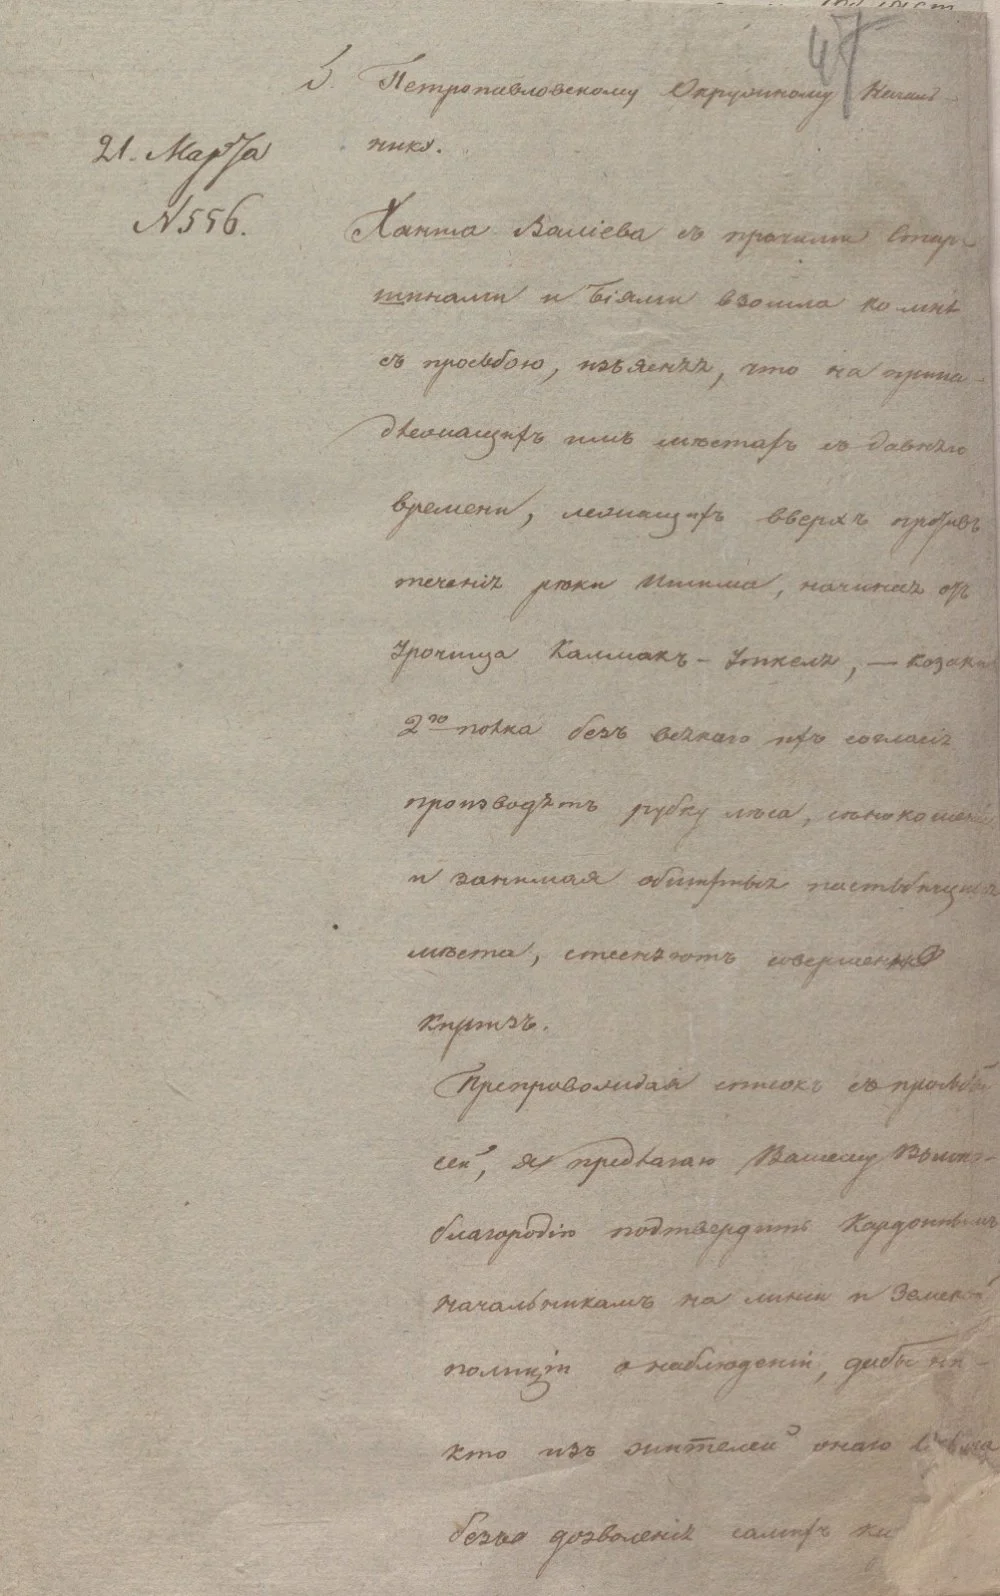 47
3. Петропавловскому Окружному Началь-
нику.
21. Марта
№ 556.
Ханша Валіева съ прочими Стар
шинами и Біями взошла ко мнѣ
съ прозьбою, изъясняя, что на прина-
длежащихъ имъ мѣстахъ съ давняго
времени, лежащихъ вверхъ противъ
теченія рѣки Ишима, начиная отъ
Урочища Калмакъ-Уткель, — козаки
2го полка безъ всякаго ихъ согласія
производятъ рубку лѣса, сѣнокошеніе
и занимая обширныя пастьбищныя
мѣста, стесняютъ совершенно
Киргизъ.
Препровождая списокъ съ прозьбы
сей, я предлагаю Вашему Высоко-
благородію подтвердить Кордоннымъ
начальникамъ на линіи и Земской
полиціи о наблюденіи, дабы ни-
кто изъ жителей онаго
безъ дозволенія самихъ